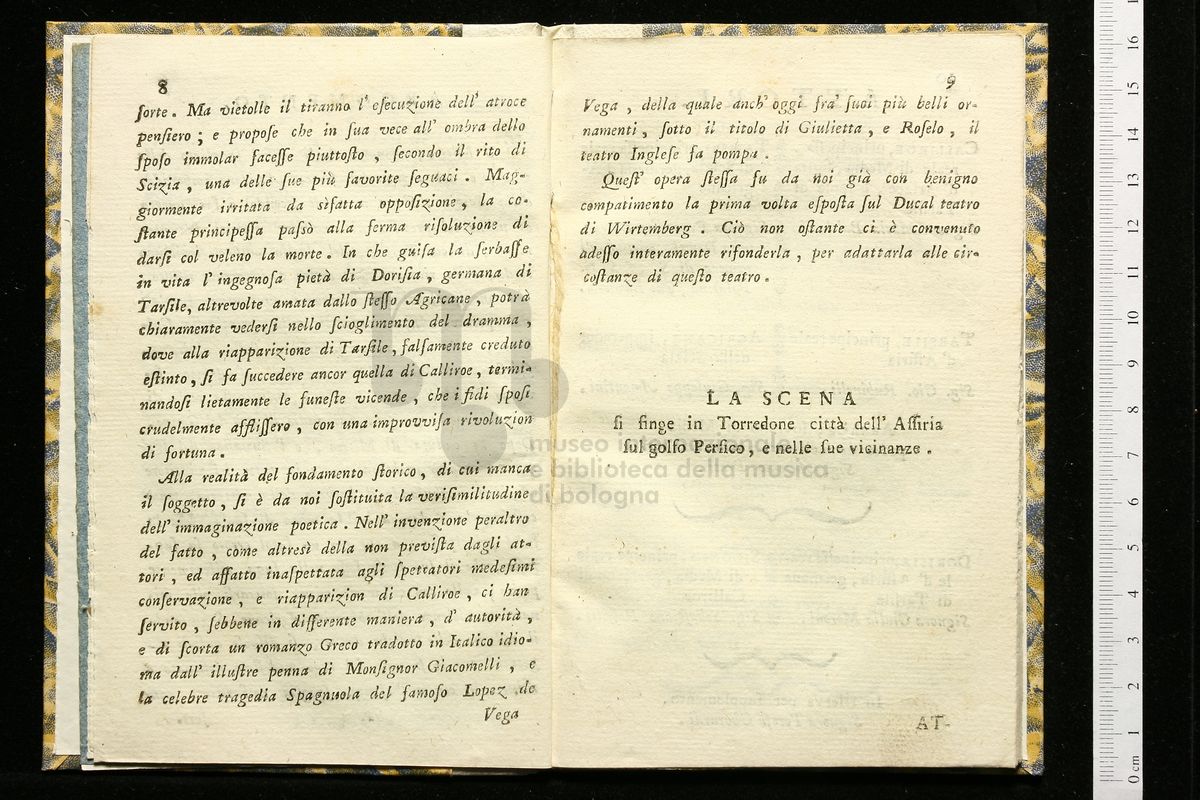 8
ſorte. Ma vietolle il tiranno l' eſecuzione dell' atroce
penſiero; e propoſe che in ſua vece all' ombra dello
ſpoſo immolar faceſſe piuttoſto, ſecondo il rito di
Scizia, una delle ſue più favorite ſeguaci. Mag-
giormente irritata da sèfatta oppoſizione, la co-
ſtante principeſſa paſsò alla ferma riſoluzione di
darſi col veleno la morte. In che guiſa la ſerbaſſe
in vita l' ingegnoſa pietà di Doriſia, germana di
Tarſile, altrevolte amata dallo ſteſſo Agricane, potrà
chiaramente vederſi nello ſcioglimento del dramma,
dove alla riapparizione di Tarſile, falſamente creduto
eſtinto, ſi fa ſuccedere ancor quella di Calliroe, termi-
nandoſi lietamente le funeſte vicende, che i fidi ſpoſi
crudelmente affliſſero, con una improvviſa rivoluzion
di fortuna.
Alla realità del fondamento ſtorico, di cui manca
il ſoggetto, ſi è da noi ſoſtituita la veriſimilitudine
dell' immaginazione poetica. Nell' invenzione peraltro
del fatto, come altresì della non previſta dagli at-
tori, ed affatto inaſpettata agli ſpettatori medeſimi
conſervazione, e riapparizion di Calliroe, ci han
ſervito, ſebbene in differente maniera, d' autorità,
e di ſcorta un romanzo Greco tradotto in Italico idio-
ma dall' illuſtre penna di Monſignor Giacomelli, e
la celebre tragedia Spagnuola del famoſo Lopez de
Vega
9
Vega, della quale anch' oggi fra' ſuoi più belli or-
namenti, ſotto il titolo di Giulietta, e Roſelo, il
teatro Ingleſe fa pompa.
Queſt' opera ſteſſa fu da noi già con benigno
compatimento la prima volta eſpoſta ſul Ducal teatro
di Wirtemberg. Ciò non oſtante ci è convenuto
adeſſo interamente rifonderla, per adattarla alle cir-
coſtanze di queſto teatro.
LA SCENA
ſi finge in Torredone città dell' Aſſiria
ſul golfo Perſico, e nelle ſue vicinanze.
AT-
museo internazionale
e biblioteca della musica
di bologna
0 cm 1 2 3 4 5 6 7 8 9 10 11 12 13 14 15 16